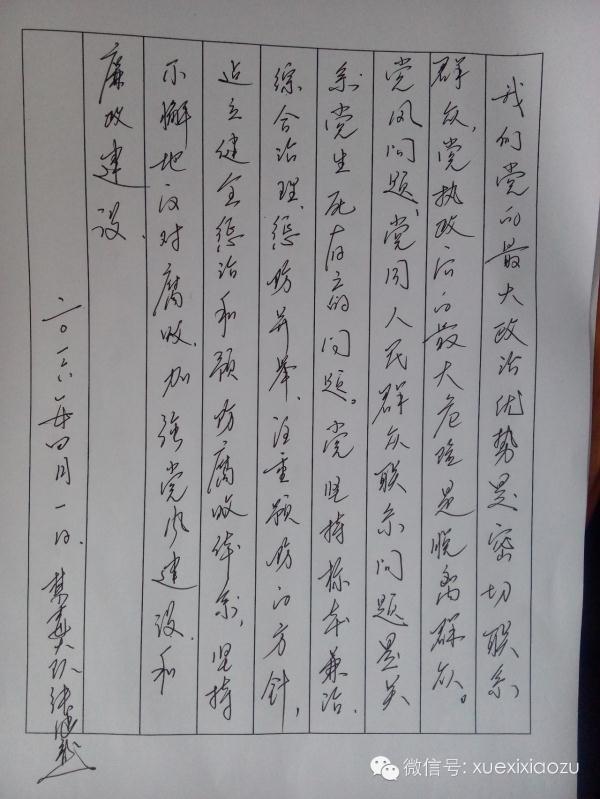 我们党的最大政治优势是密切联系
群众，党执政后的最大危险是脱离群众。
党风问题、党同人民群众联系问题是关
系党生死存亡的问题。党坚持标本兼治、
综合治理、惩防并举、注重预防的方针，
建立健全惩治和预防腐败体系，坚持
不懈地反对腐败，加强党风建设和
廉政建设。
二〇一六年四月一日
微信号: xuexixiaozu